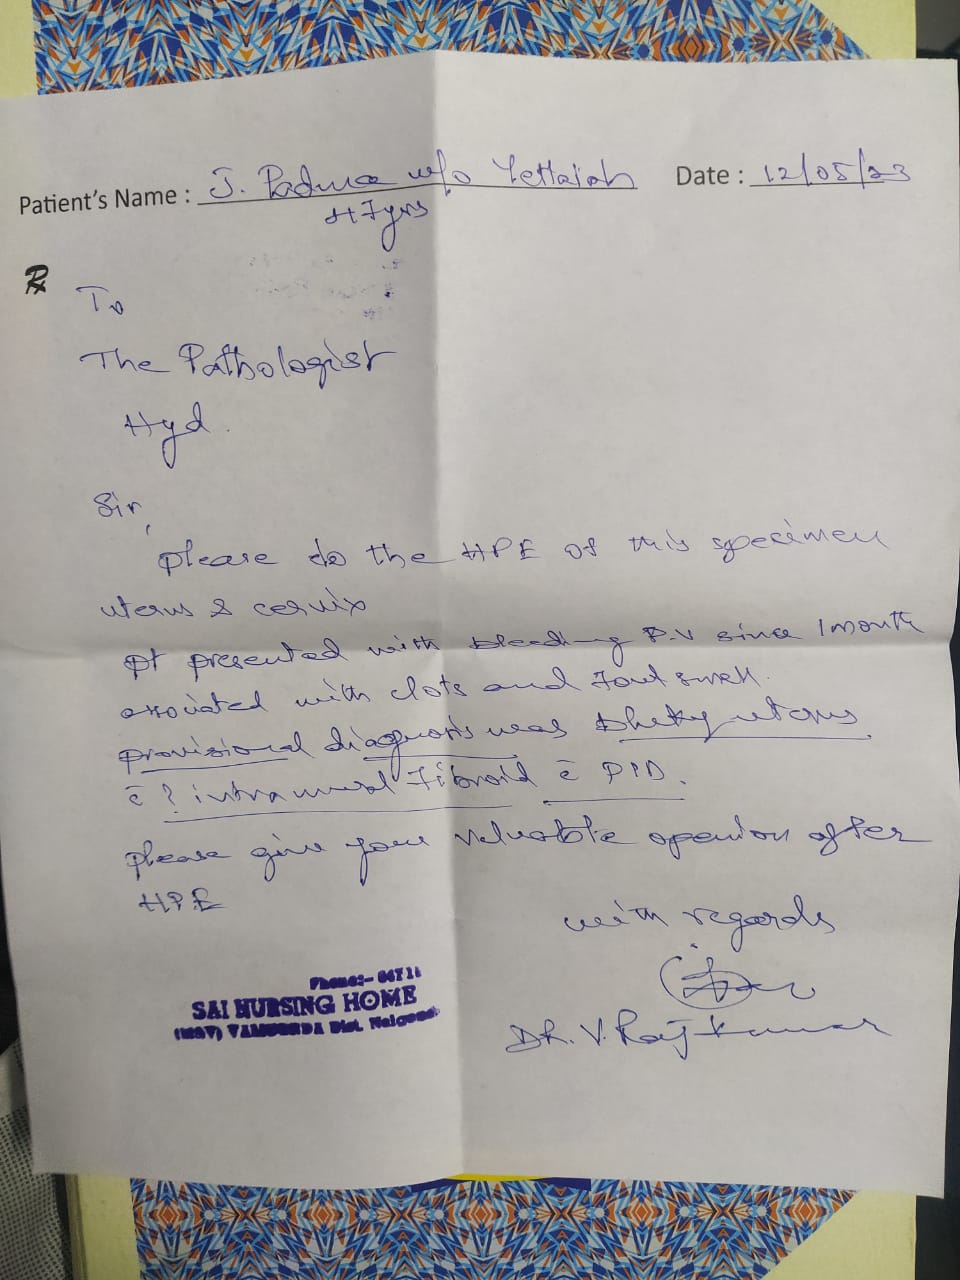 Patient's Name : J. Padma w/o Yettaiah Date : 12/05/23
47yrs
Rx
To
The Pathologist
Hyd.
Sir,
please do the HPE of this specimen
uterus & cervix
pt presented with bleeding P.V since 1 month
associated with clots and foul smell.
provisional diagnosis was Bulky uterus
c̄ ? intramural Fibroid c̄ PID.
please give your valuable openion after
HPE
with regards
Phone:-
SAI NURSING HOME
Dist.
DR. V. Raj kumar